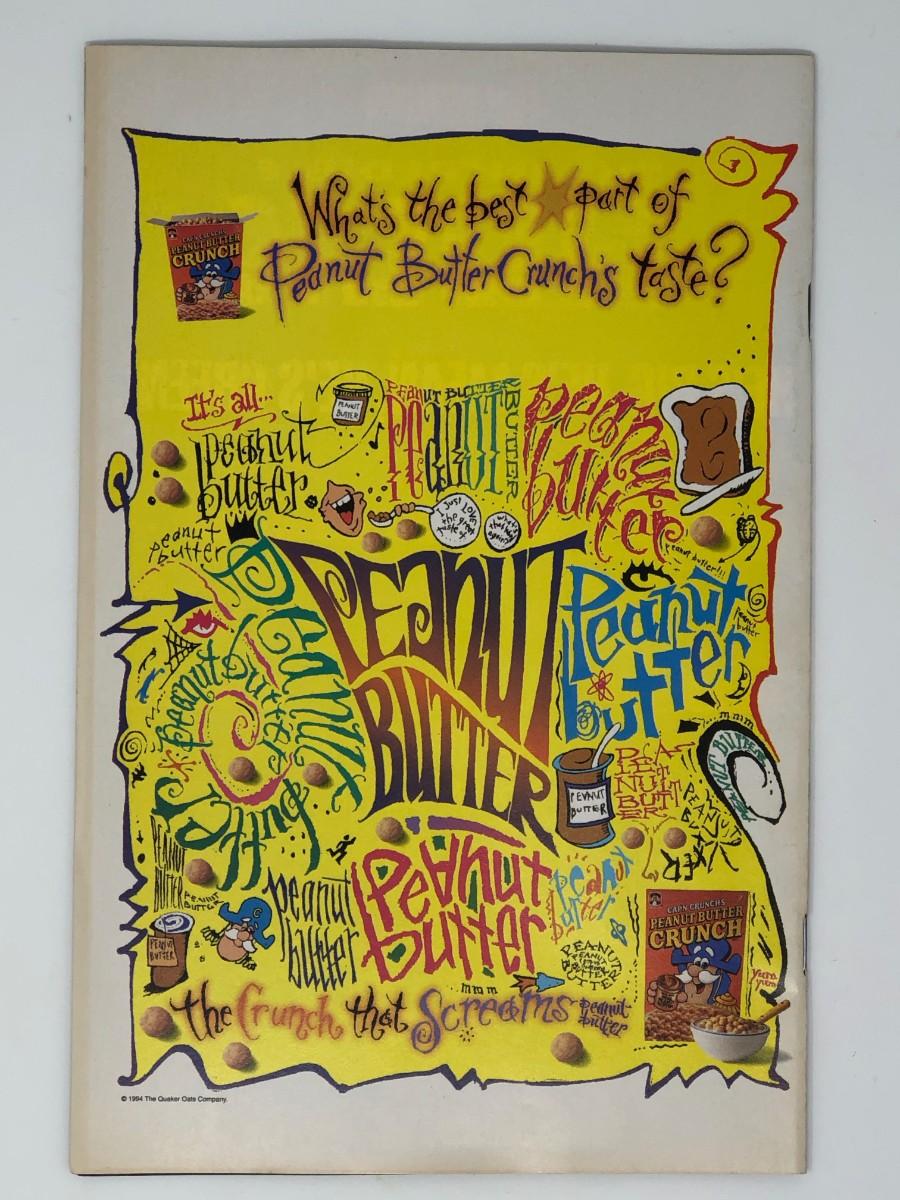 What's the best part of
Peanut Butter Crunch's taste?
CAP'N CRUNCH'S
PEANUT BUTTER
CRUNCH
It's all...
peanut
butter
PEANUT
BUTTER
PEANUT BUTTER
PEANUT
BUTTER
peanut
butter
I just LOVE
the great
taste of
what's
that
again?
peanut
butter
peanut butter!!!
Peanut
butter
PEANUT
BUTTER
Peanut
butter
peanut
butter
Peanut Butter
mmm
PEANUT BUTTER
PEANUT
BUTTER
PEA
NUT
BUTT
ER
PEANUT
BUTTER
PEANUT
BUTTER
PEANUT
BUTTER
peanut
butter
Peanut
butter
Peanut
butter
PEANUT
BUTTER
C
PEANUT
BUTTER
mmm
CAP'N CRUNCH'S
PEANUT BUTTER
CRUNCH
yum
yum
the Crunch that Screams peanut
butter
© 1994 The Quaker Oats Company.